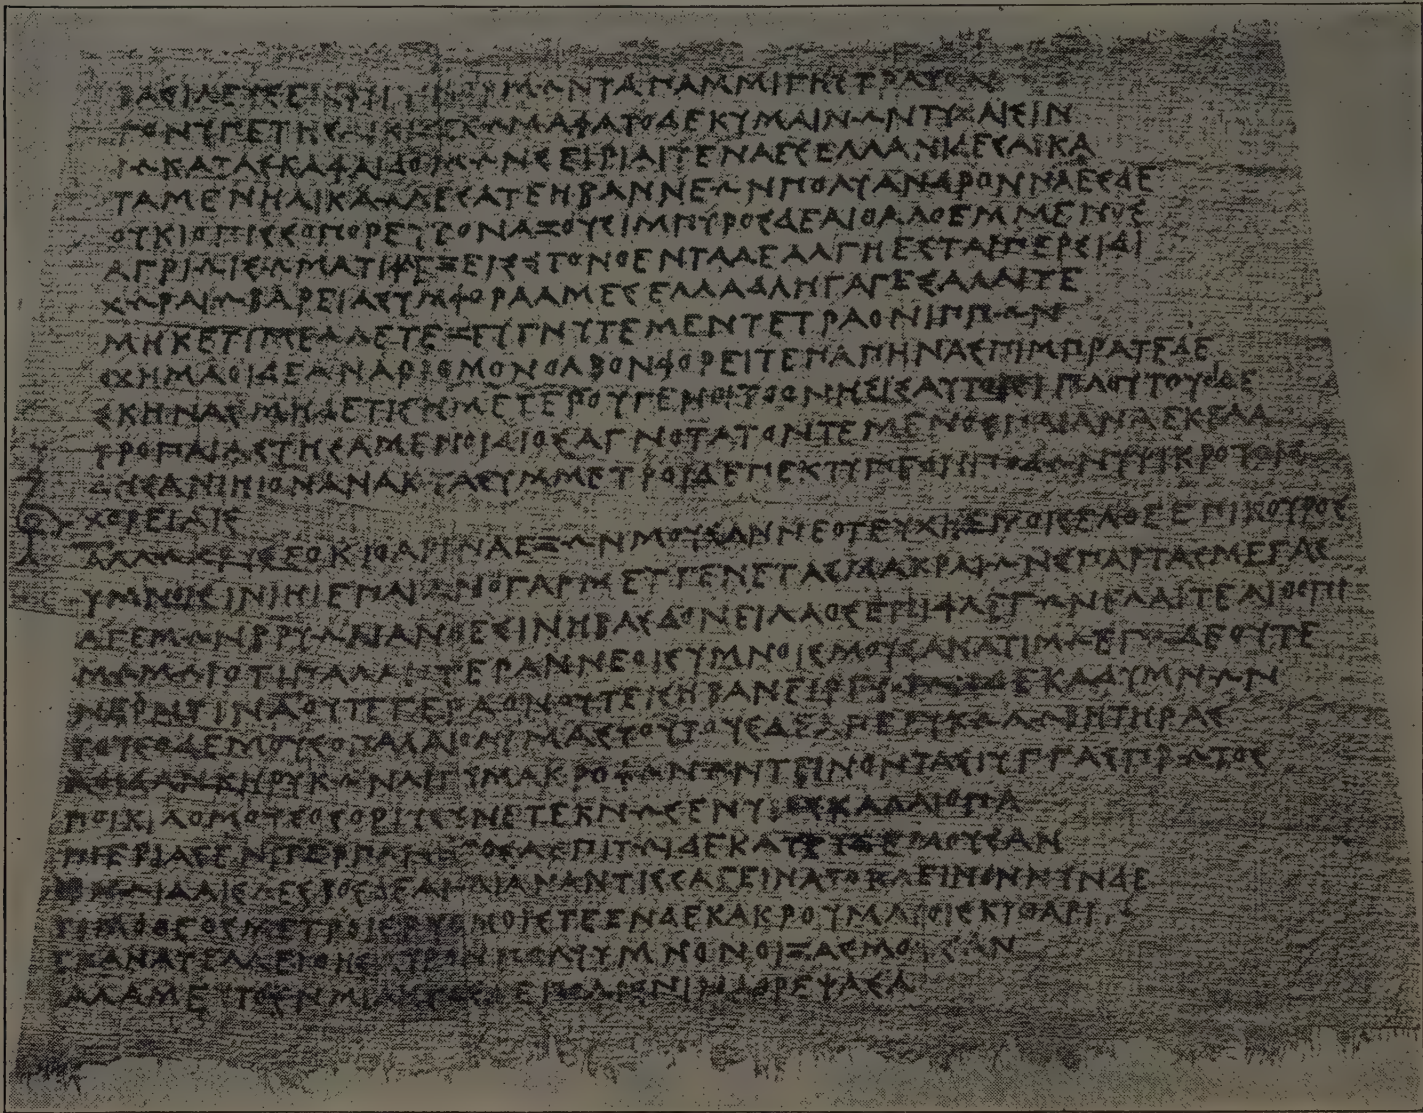 ΒΑΣΙΛΕΥΣΕΙ ΟΡΜΩΝΤΑΠΑΜΜΙΓΗΣΤΡΑΤΟΝ
ΓΟΝΥΠΕΤΗΣΑΙΚΙΖΕΣΩΜΑΦΑΤΟΔΕΚΥΜΑΙΝΩΝΤΥΧΑΙΣΙΝ
ΙΩΚΑΤΑΣΚΑΦΑΙΔΟΜΩΝΣΕΙΡΙΑΙΤΕΝΑΕΣΕΛΛΑΝΙΔΕΣΑΙΚΑ
ΤΑΜΕΝΗΛΙΚΑΩΛΕΣΑΤΕΗΒΑΝΝΕΩΝΠΟΛΥΑΝΔΡΟΝΝΑΕΣΔΕ
ΟΥΚΙΟΠΙΣΣΟΠΟΡΕΥΤΟΝΑΞΟΥΣΙΜΠΥΡΟΣΔΕΑΙΘΑΛΟΕΜΜΕΝΟΣ
ΑΓΡΙΩΙΣΩΜΑΤΙΦΛΕΞΕΙΣΣΤΟΝΟΕΝΤΑΔΕΑΛΓΗΕΣΤΑΙΠΕΡΣΙΔΙ
ΧΩΡΑΙΩΒΑΡΕΙΑΣΥΜΦΟΡΑΑΜΕΣΕΛΛΑΔΑΗΓΑΓΕΣΑΛΛΑΙΤΕ
ΜΗΚΕΤΙΜΕΛΛΕΤΕΖΕΥΓΝΥΤΕΜΕΝΤΕΤΡΑΟΝΙΠΠΩΝ
ΟΧΗΜΑΟΙΔΕΑΝΑΡΙΘΜΟΝΟΛΒΟΝΦΟΡΕΙΤΕΠΑΠΗΝΑΣΠΙΜΠΡΑΤΕΔΕ
ΣΚΗΝΑΣΜΗΔΕΤΙΣΗΜΕΤΕΡΟΥΓΕΝΟΙΤΟΟΝΗΣΙΣΑΥΤΟΙΣΙΠΛΟΥΤΟΥΟΙΔΕ
ΤΡΟΠΑΙΑΣΤΗΣΑΜΕΝΟΙΔΙΟΣΑΓΝΟΤΑΤΟΝΤΕΜΕΝΟΣΠΑΙΑΝΑΕΚΕΛΑ
ΔΗΣΑΝΙΗΙΟΝΑΝΑΚΤΑΣΥΜΜΕΤΡΟΙΔΕΠΕΚΤΥΠΕΟΝΠΟΔΩΝΥΨΙΚΡΟΤΟΙΣ
ΧΟΡΕΙΑΙΣ
ΑΛΛΩΧΡΥΣΕΟΚΙΘΑΡΙΝΑΕΞΩΝΜΟΥΣΑΝΝΕΟΤΕΥΧΗΕΜΟΙΣΕΛΘΕΕΠΙΚΟΥΡΟΣ
ΥΜΝΟΙΣΙΝΙΗΙΕΠΑΙΑΝΟΓΑΡΜΕΥΓΕΝΕΤΑΣΜΑΚΡΑΙΩΝΣΠΑΡΤΑΣΜΕΓΑΣ
ΑΓΕΜΩΝΒΡΥΩΝΑΝΘΕΣΙΝΗΒΑΣΔΟΝΕΙΛΑΟΣΕΠΙΦΛΕΓΩΝΕΛΑΙΤΕΑΙΘΟΠΙ
ΜΩΜΩΙΟΤΙΠΑΛΑΙΟΤΕΡΑΝΝΕΟΙΣΥΜΝΟΙΣΜΟΥΣΑΝΑΤΙΜΩΕΓΩΔΕΟΥΤΕ
ΝΕΟΝΤΙΝΑΟΥΤΕΓΕΡΑΟΝΟΥΤΕΙΣΗΒΑΝΕΙΡΓΩΤΩΝΔΕΕΚΑΔΥΜΝΩΝ
ΤΟΥΣΔΕΜΟΥΣΟΠΑΛΑΙΟΛΥΜΑΣΤΟΥΤΟΥΣΔΕΑΠΕΡΥΚΩΛΩΒΗΤΗΡΑΣ
ΑΟΙΔΑΝΚΗΡΥΚΩΝΛΙΓΥΜΑΚΡΟΦΩΝΩΝΤΕΙΝΟΝΤΑΣΙΥΓΓΑΣΠΡΩΤΟΣ
ΠΟΙΚΙΛΟΜΟΥΣΟΣΟΡΙΥΣΥΝΕΤΕΚΝΩΣΕΝΥΙΟΣΚΑΛΛΙΟΠΑ
ΠΙΕΡΙΑΣΕΝΙΤΕΡΠΑΝ ΟΣΔΕΠΙΤΩΙΔΕΚΑΤΕΥΞΕΜΟΥΣΑΝ
ΕΝΩΙΔΑΙΣΛΕΣΒΟΣΔΕΑΙΩΛΙΑΝΑΝΤΙΣΣΑΓΕΙΝΑΤΟΚΛΕΙΝΟΝΝΥΝΔΕ
ΤΙΜΟΘΕΟΣΜΕΤΡΟΙΣΡΥΘΜΟΙΣΤΕΕΝΔΕΚΑΚΡΟΥΜΑΤΟΙΣΚΙΘΑΡΙ
ΕΞΑΝΑΤΕΛΛΕΙΘΗΣΑΥΡΟΝΠΟΛΥΥΜΝΟΝΟΙΞΑΣΜΟΥΣΑΝ
ΘΑΛΑΜΕΥΤΟΝΜΙΛΗΤΟΣΔΕΠΟΛΙΣΝΙΝΑΘΡΕΨΑΣΑ